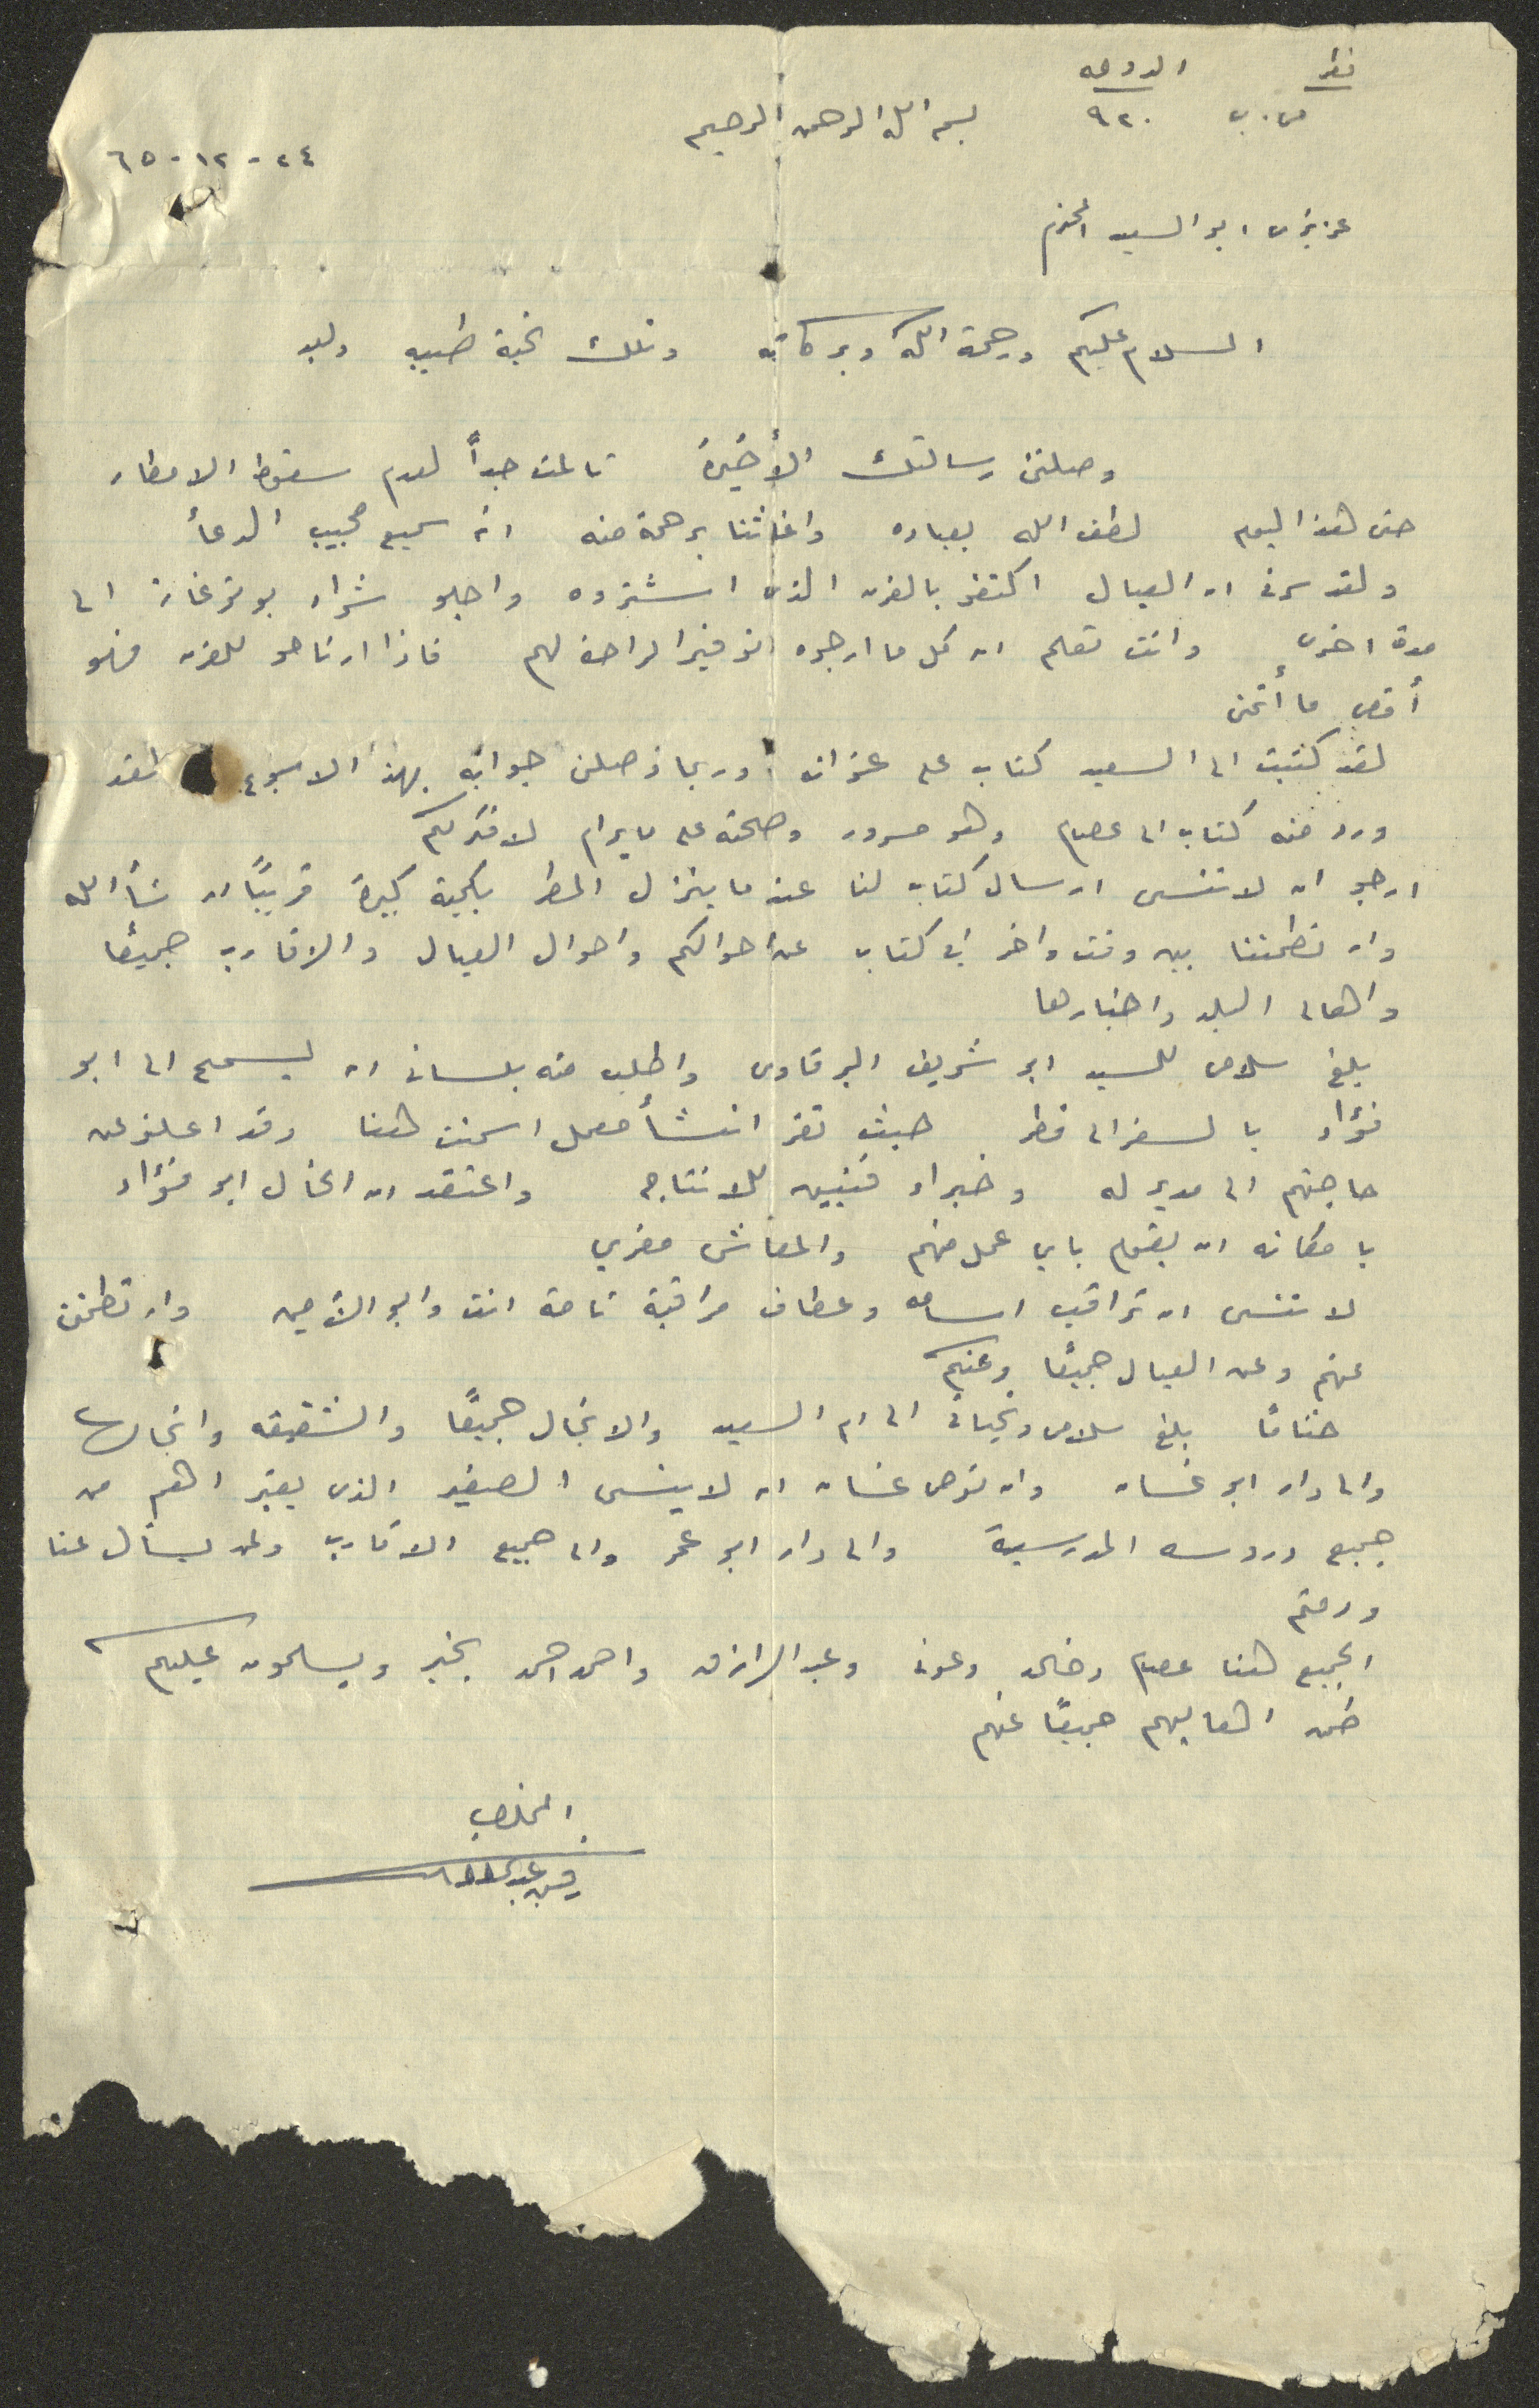 قطر الدوحه
ص.ب ٩٢٠ بسم الله الرحمن الرحيم
٢٤-١٢-٦٥
عزيزي ابو السيد المحترم
السلام عليكم ورحمة الله وبركاته وتلك تحية طيبه وبعد
وصلتني رسالتك الأخيرة تألمت جداً لعدم سقوط الامطار
حتى هذا اليوم لطف الله بعباده واغاثنا برحمة منه انه سميع مجيب الدعأ
ولقد سرني ان العيال اكتفو بالفرن الذي اشتروه واجلو شراء بوتوغاز الى
مدة اخرى وانت تعلم ان كل ما ارجوه توفير الراحة لهم فاذا ارتاحو للفرن فهو
أقصى ما أتمنى
لقد كتبت الى السعيد كتاب على عنوانه وربما توصلني جوابه بهذا الاسبوع لقد
ورد منه كتاب الى عصام وهو مسرور وصحته على ما يرام لا فكر لكم
ارجو ان لا تنسى ارسال كتاب لنا عندما ينزل المطر بكمية كبيرة قريباً ان شأ الله
وان تطمئننا بين وقت واخر في كتاب عن احوالكم واحوال العيال والاقارب جميعًا
واهالي البلد واخبارها
بلغ سلامي للسيد ابو شريف البرقاوي واطلب منه بلساني ان يسمح الى ابو
فؤاد بالسفر الى قطر حيث تقرر انشأ معمل اسمنت هنا وقد اعلنو عن
حاجتهم الى مدير له وخبراء فنيين للانتاج واعتقد ان الخال ابو فؤاد
بامكانه ان يقوم باي عمل منهم والمعاش مغري
لا تنسى ان تراقب اسامه وعطاف مراقبة تامة انت وابو الأمين وان تطمني
عنهم وعن العيال جميعًا وعنكم
ختامًا بلغ سلامي وتحياتي الى ام السيد والانجال جميعًا والشقيقه وانجالها
والى دار ابو غسان وان توصي غسان ان لا ينسى الصغير الذي يعتبر اهم من
جميع دروسه المدرسية والى دار ابو عمر والى جميع الاقارب ولمن يسأل عنا
ودمتم
الجميع هنا عصام وخالد وعوني وعبد الرازق واحمد احمد بخير ويسلمون عليكم
طمن اهاليهم جميعًا عنهم
المخلص